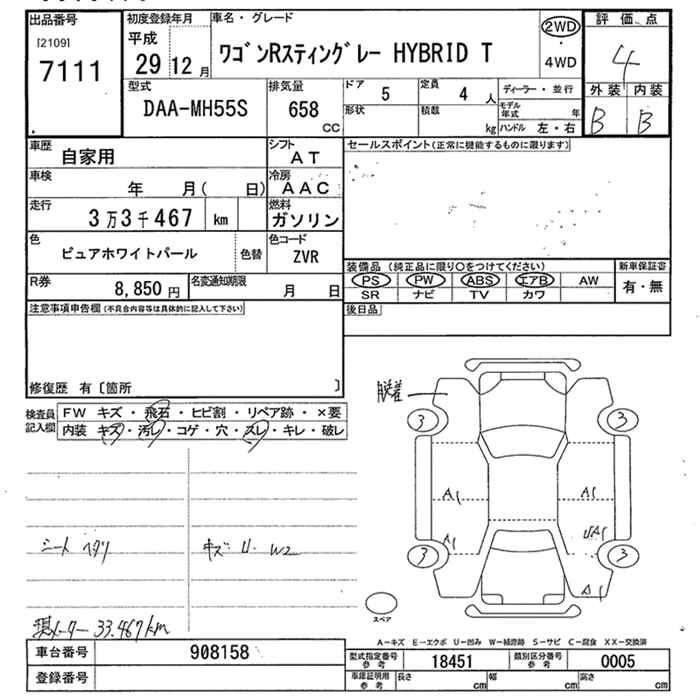 出品番号
[2109]
7111
初度登録年月
平成
29年12月
車名・グレード
ワゴンRスティングレー HYBRID T
2WD
・
4WD
評価点
4
外装 内装
B B
型式
DAA-MH55S
排気量
658
CC
ドア 5
定員 4 人
ディーラー・並行
形状
積載 kg
モデル年式 年
ハンドル 左・右
車歴
自家用
シフト
AT
セールスポイント(正常に機能するものに限ります)
車検
年 月( 日)
冷房
AAC
走行
3万3千467 km
燃料
ガソリン
色
ピュアホワイトパール
色替
色コード
ZVR
装備品 (純正品に限り○をつけてください)
新車保証書
PS PW ABS エアB AW
SR ナビ TV カワ
有・無
R券
8,850 円
名変通知期限
月 日
後日品
注意事項申告欄(不具合内容等は具体的に記入して下さい)
修復歴 有〔箇所 〕
検査員記入欄
FW キズ・飛石・ヒビ割・リペア跡・×要
内装 キズ・汚レ・コゲ・穴・スレ・キレ・破レ
脱着
3 3
A1 A1
A1 UA1
3 3
A1
シート ヘタリ
キズ U W2
現メーター 33.467km
スペア
A-キズ E-エクボ U-凹み W-補修跡 S-サビ C-腐食 XX-交換済
車台番号 908158
型式指定番号 参考 18451
類別区分番号 参考 0005
登録番号
車庫証明用 参考
長さ cm
幅 cm
高さ cm